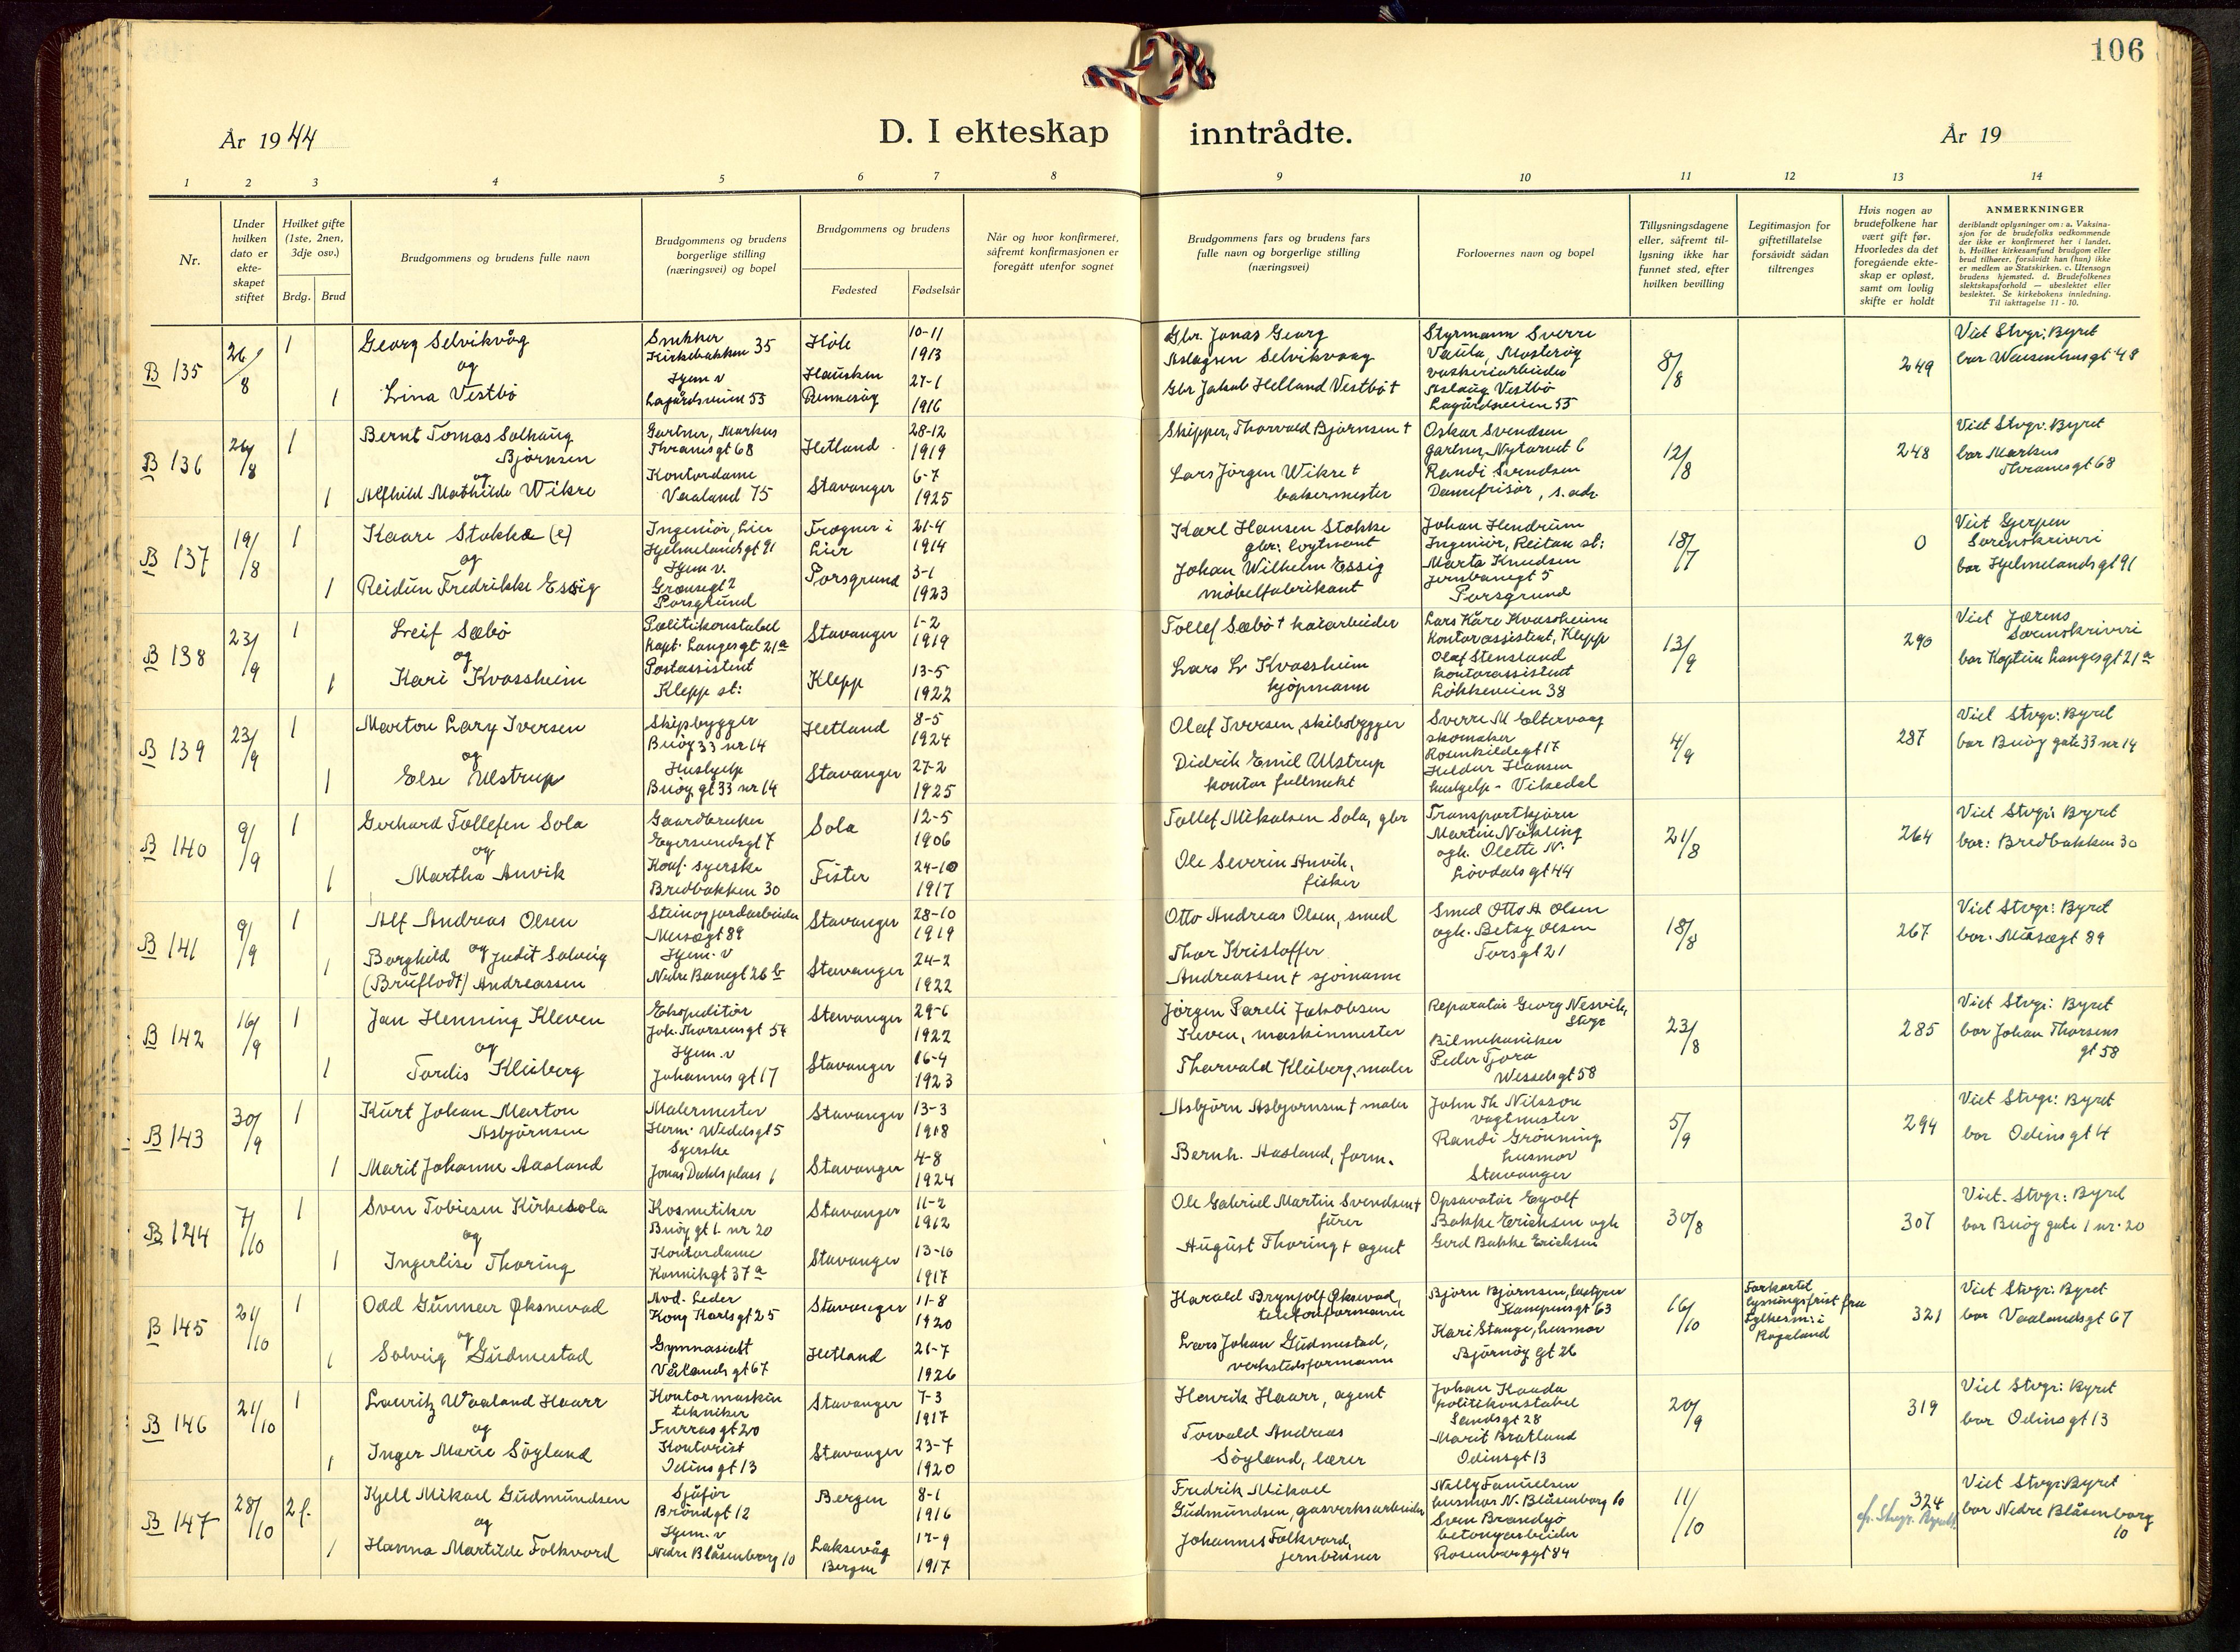 106
År 1944
D. I ekteskap inntrådte.
År 19
1 2 3 4 5 6 7 8 9 10 11 12 13 14
Nr.
Under hvilken dato er ekte- skapet stiftet
Hvilket gifte (1ste, 2nen, 3dje osv.)
Brdg. Brud
Brudgommens og brudens fulle navn
Brudgommens og brudens borgerlige stilling (næringsvei) og bopel
Brudgommens og brudens
Fødested Fødselsår
Når og hvor konfirmeret, såfremt konfirmasjonen er foregått utenfor sognet
Brudgommens fars og brudens fars fulle navn og borgerlige stilling (næringsvei)
Forlovernes navn og bopel
Tillysningsdagene eller, såfremt til- lysning ikke har funnet sted, efter hvilken bevilling
Legitimasjon for giftetillatelse forsåvidt sådan tiltrenges
Hvis nogen av brudefolkene har vært gift før. Hvorledes da det foregående ekte- skap er opløst, samt om lovlig skifte er holdt
ANMERKNINGER
deriblandt oplysninger om: a. Vaksina- sjon for de brudefolks vedkommende der ikke er konfirmeret her i landet. b. Hvilket kirkesamfund brudgom eller brud tilhører, forsåvidt han (hun) ikke er medlem av Statskirken. c. Utensogn brudens hjemsted. d. Brudefolkenes slektskapsforhold — ubeslektet eller beslektet. Se kirkebokens innledning. Til iakttagelse 11 - 10.
B 135
26/8
1
Georg Selvikvåg
og
1
Lina Vestbø
Snekker
Kirkebakken 35
Hjem v
Lagårdsveien 55
Høle
10-11
1913
Hausken
Rennesøy
27-1
1916
Gbr. Jonas Georg
Aslagsen Selvikvaag
Gbr Jakob Helland Vestbø †
Styrmann Sverre
Vaula, Mosterøy
Aslaug Vestbø
Lagårdsveien 55
8/8
249
Viet Stvgr: Byret
bor Waisenhusgt 48
B 136
26/8
1
Bernt Tomas Solhaug
Bjørnsen
og
1
Alfhild Mathilde Wikre
Gartner, Markus
Thranesgt 68
Kontordame
Vaaland 75
Hetland
28-12
1919
Stavanger
6-7
1925
Skipper, Thorvald Bjørnsen †
Lars Jørgen Wikre †
bakermester
Oskar Svendsen
gartner, Nytorvet 6
Randi Svendsen
Damefrisør, s. adr.
12/8
248
Viet Stvgr. Byret
bor Markus
Thranesgt 68
B 137
19/8
1
Kaare Stokke (e)
og
1
Reidun Fredrikke Essig
Ingeniør, Lier
Hjelmelandsgt 91
Hjem v.
Grønsegt 2
Porsgrund
Frogner i
Lier
21-4
1914
Porsgrund
3-1
1923
Karl Hansen Stokke
Johan Wilhelm Essig
møbelfabrikant
Johan Hendrum
Ingeniør, Reitan st:
Marta Knudsen
Jernbanegt 5
Porsgrund
18/7
0
Viet Gjerpen
Sorenskriveri
bor Hjelmelandsgt 91
B 138
23/9
1
Leif Sæbø
og
1
Kari Kvassheim
Politikonstabel
Kapt. Langesgt 21a
Postassistent
Klepp st:
Stavanger
1-2
1919
Klepp
13-5
1922
Tollef Sæbø † kaiarbeider
Lars L. Kvassheim
kjøpmann
Lars Kåre Kvassheim
Kontorassistent, Klepp
Olaf Stensland
kontorassistent
Løkkeveien 38
13/9
290
Viet Jærens
Sorenskriveri
bor Kaptein Langesgt 21a
B 139
23/9
1
Marton Lary Iversen
og
1
Else Ulstrup
Skipsbygger
Buøy 33 nr 14
Hushjelp
Buøy gt 33 nr 14
Hetland
8-5
1924
Stavanger
27-2
1925
Olaf Iversen, skibsbygger
Didrik Emil Ulstrup
kontor fullmekt
Sverre M Eltervaag
skomaker
Rosenkildegt 17
Heldur Hansen
hushjelp - Vikedal
4/9
287
Viet Stvgr: Byret
bor Buøy gate 33 nr 14
B 140
9/9
1
Gerhard Tollefsen Sola
og
1
Martha Anvik
Gaardbruker
Egersundsgt 7
Konf. syerske
Bredbakken 30
Sola
12-5
1906
Fister
24-10
1917
Tollef Mikalsen Sola, gbr
Ole Severin Anvik,
fisker
Transportkjører
Martin Nøkling
ogh. Olette N.
Løvdalsgt 44
21/8
264
Viet Stvgr: Byret
bor: Bredbakken 30
B 141
9/9
1
Alf Andreas Olsen
og
1
Borghild Judit Solveig
(Bruflodt) Andreassen
Stein og jordarbeider
Musægt 89
Hjem. v
Nedre Banegt 26 b
Stavanger
28-10
1919
Stavanger
24-2
1922
Otto Andreas Olsen, smed
Thor Kristoffer
Andreassen † sjømann
Smed Otto A Olsen
ogh. Betsy Olsen
Torsgt 21
18/8
267
Viet Stvgr: Byret
bor. Musægt 89
B 142
16/9
1
Jan Henning Kleven
og
1
Tordis Kleiberg
Ekspeditør
Joh. Thorsensgt 54
Hjem. v
Johannesgt 17
Stavanger
29-6
1922
Stavanger
16-4
1923
Jørgen Pareli Jakobsen
Kleven, maskinmester
Thorvald Kleiberg, maler
Reparatør Georg Nesvik,
Stvgr
Bilmekaniker
Peder Tjora
Wesselsgt 58
23/8
285
Viet Stvgr: Byret
bor Johan Thorsens
gt 58
B 143
30/9
1
Kurt Johan Marton
Asbjørnsen
1
Marit Johanne Aasland
Malermester
Herm. Wedelsgt 5
Syerske
Jonas Dahls plass 1
Stavanger
13-3
1918
Stavanger
4-8
1924
Asbjørn Asbjørnsen † maler
Bernh. Aasland, form.
John Th Nilsson
vagtmester
Randi Grønning
husmor
Stavanger
5/9
294
Viet Stvgr: Byret
bor Odinsgt 4
B 144
7/10
1
Sven Tobiesen Kirkesola
og
1
Ingerlise Thoring
Kosmetiker
Buøy gt 1. nr 20
Kontordame
Kannikgt 37a
Stavanger
11-2
1912
Stavanger
13-10
1917
Ole Gabriel Martin Svendsen †
fører
August Thoring † agent
Opsavatør Eyolf
Bakke Erichsen ogh
Gerd Bakke Erichsen
30/8
307
Viet. Stvgr: Byret
bor Buøy gate 1 nr. 20
B 145
21/10
1
Odd Gunnar Øksnevad
og
1
Solveig Gudmestad
Avd. Leder
Kong Karlsgt 25
Gymnasiast
Vålandsgt 67
Stavanger
11-8
1920
Hetland
21-7
1926
Harald Brynjolf Øksnevad,
telefonformann
Lars Johan Gudmestad,
verkstedsformann
Bjørn Bjørnsen, bestyrer
Kampensgt 63
Kari Stange, husmor
Bjørnøy gt 26
16/10
Forkortet
lysningsfrist fra
Fylkesm: i
Rogaland
321
Viet Stvgr: Byret
bor Vaalandsgt 67
B 146
21/10
1
Lauritz Waaland Haarr
og
1
Inger Marie Søyland
Kontormaskin
tekniker
Furrasgt 20
Kontorist
Odinsgt 13
Stavanger
7-3
1917
Stavanger
23-7
1920
Henrik Haarr, agent
Torvald Andreas
Søyland, lærer
Johan Kauda
politikonstabel
Sandsgt 28
Marit Bratland
Odinsgt 13
20/9
319
Viet Stvgr: Byret
bor Odinsgt 13
B 147
28/10
2 f.
Kjell Mikael Gudmundsen
og
1
Hanna Martilde Folkvord
Sjåfør
Brøndgt 12
Hjem. v
Nedre Blåsenborg 10
Bergen
8-1
1916
Laksevåg
Bergen
17-9
1917
Fredrik Mikael
Gudmundsen, gasverksarbeider
Johannes Folkvord,
jernbinner
Nelly Famuelsen
husmor N. Blåsenborg 10
Sven Brandsjø
betongarbeider
Rosenberggt 84
11/10
324
Viet Stvgr: Byret
bor Nedre Blåsenborg
10